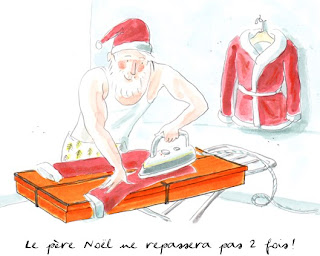 Le père Noël ne repassera pas 2 fois!